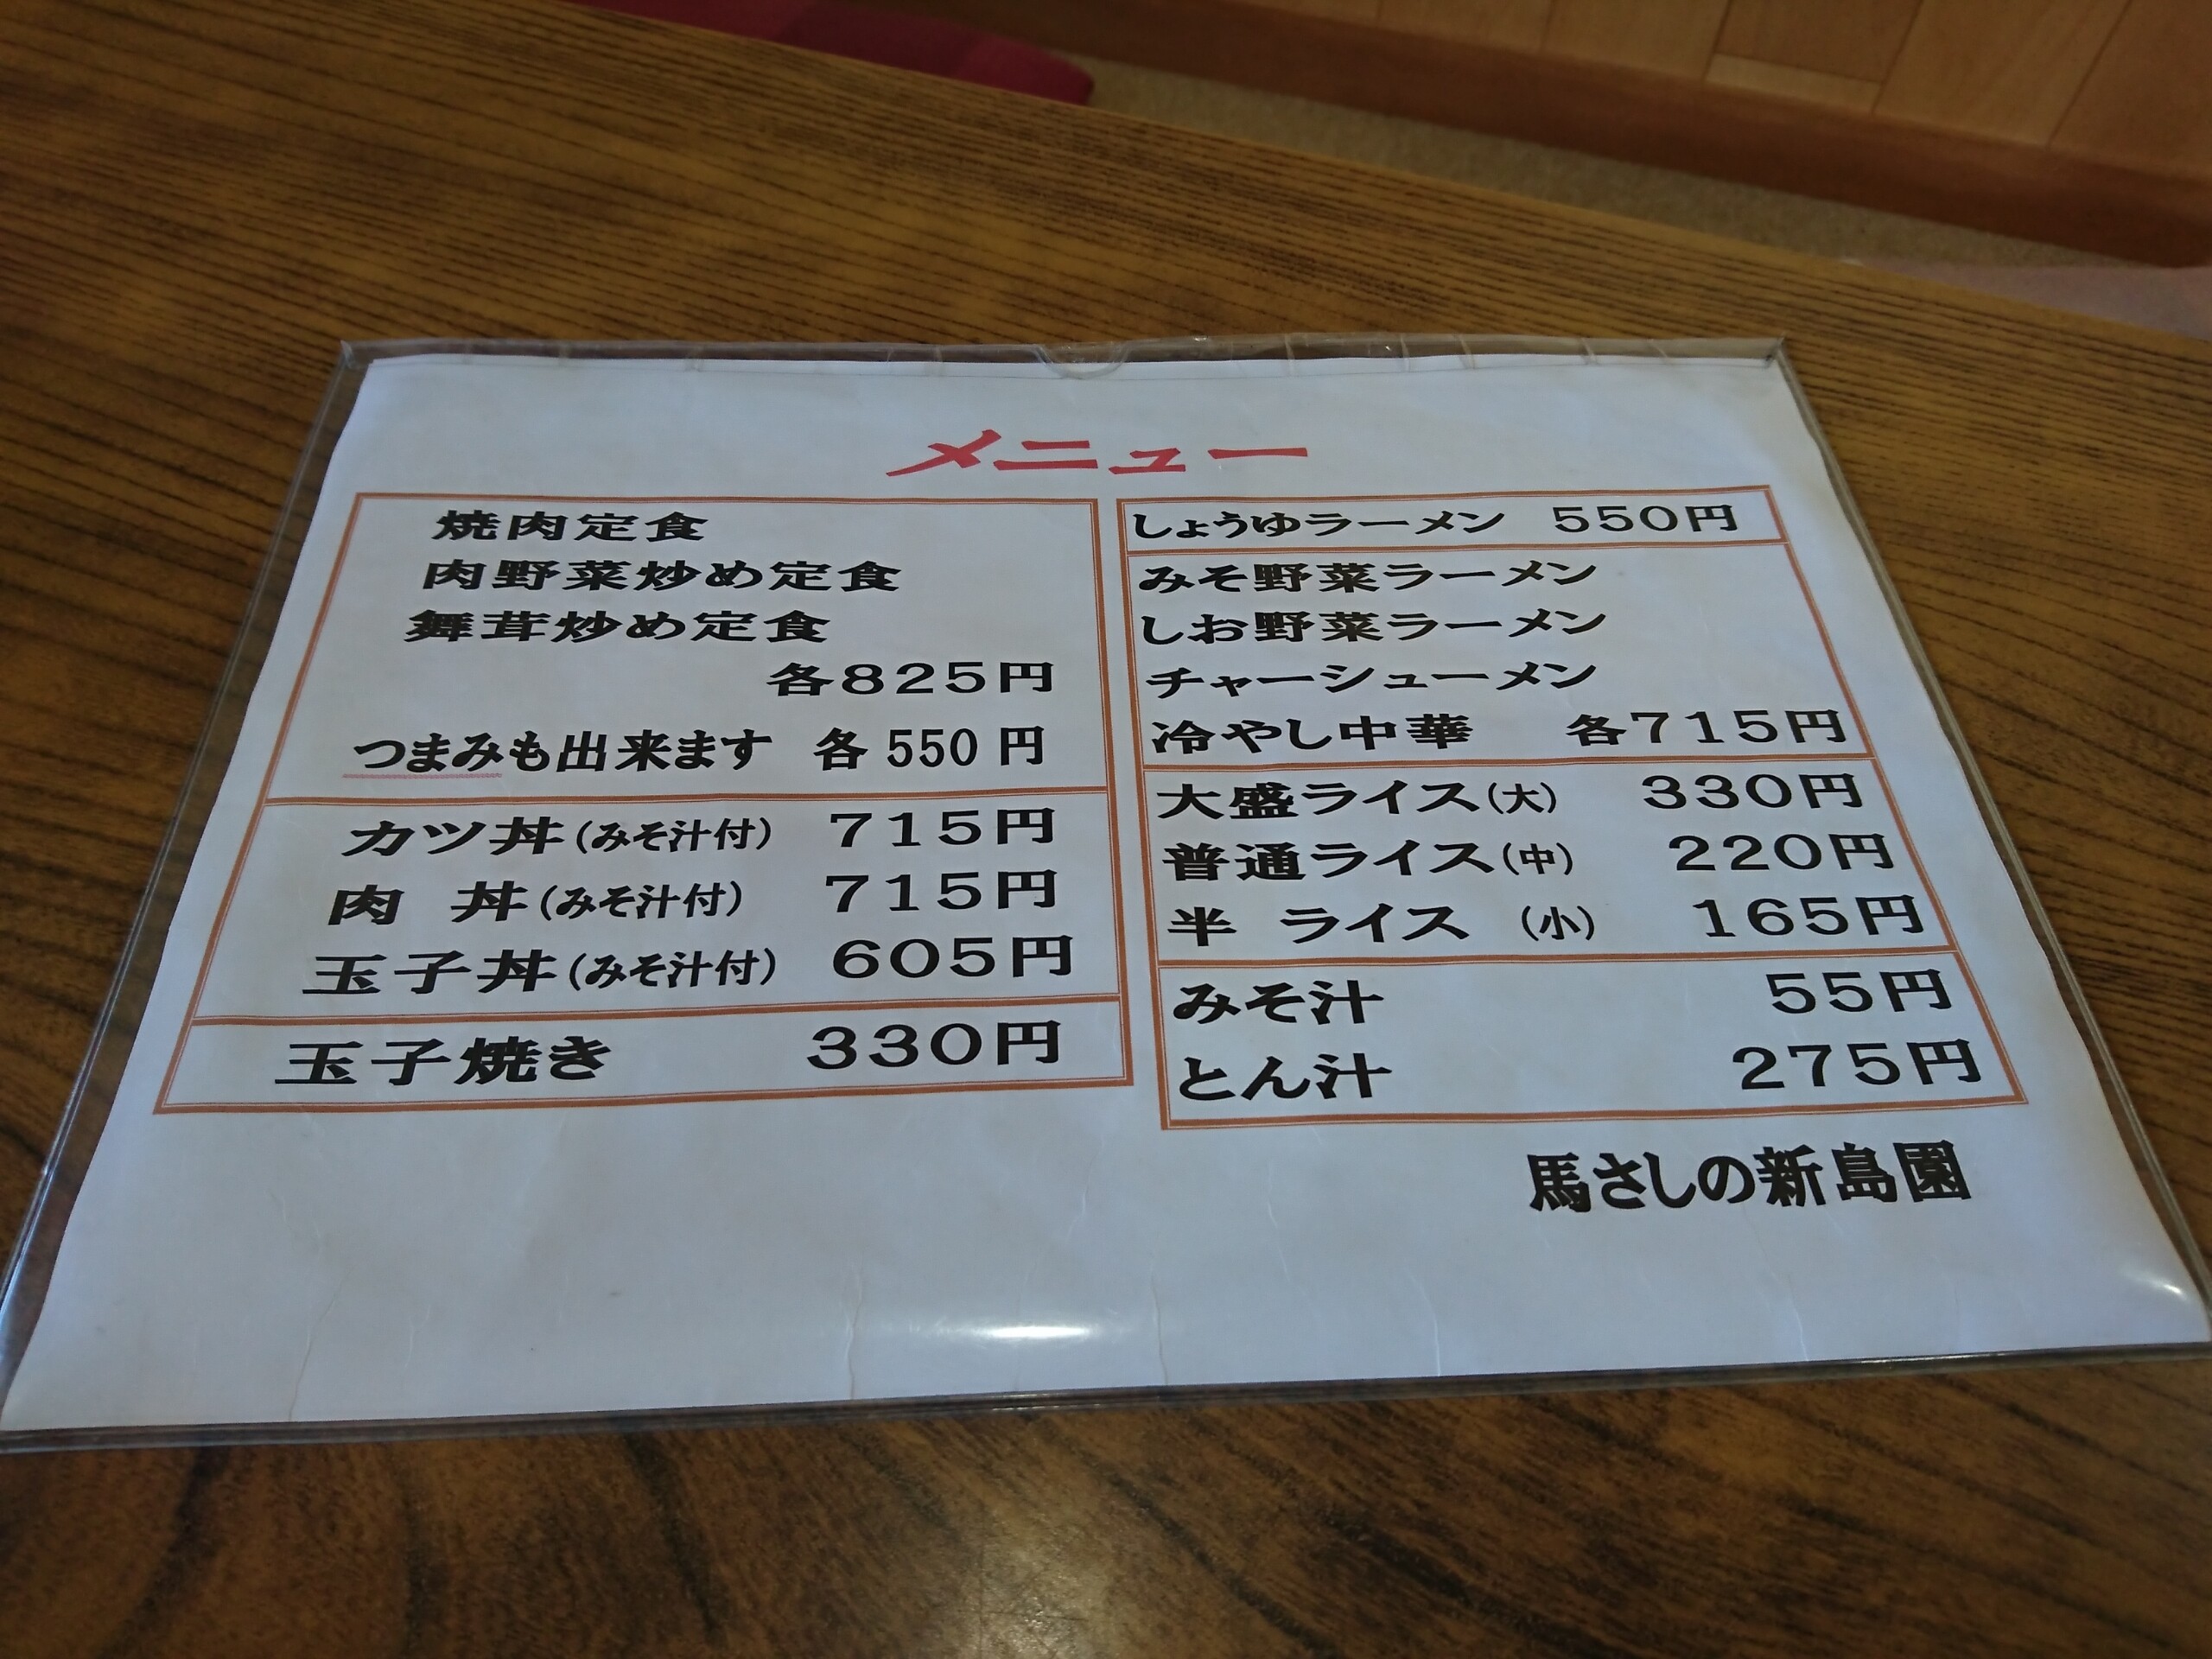 メニュー
焼肉定食
肉野菜炒め定食
舞茸炒め定食
各825円
つまみも出来ます 各550円
カツ丼(みそ汁付) 715円
肉 丼(みそ汁付) 715円
玉子丼(みそ汁付) 605円
玉子焼き 330円
しょうゆラーメン 550円
みそ野菜ラーメン
しお野菜ラーメン
チャーシューメン
冷やし中華 各715円
大盛ライス(大) 330円
普通ライス(中) 220円
半 ライス (小) 165円
みそ汁 55円
とん汁 275円
馬さしの新島園